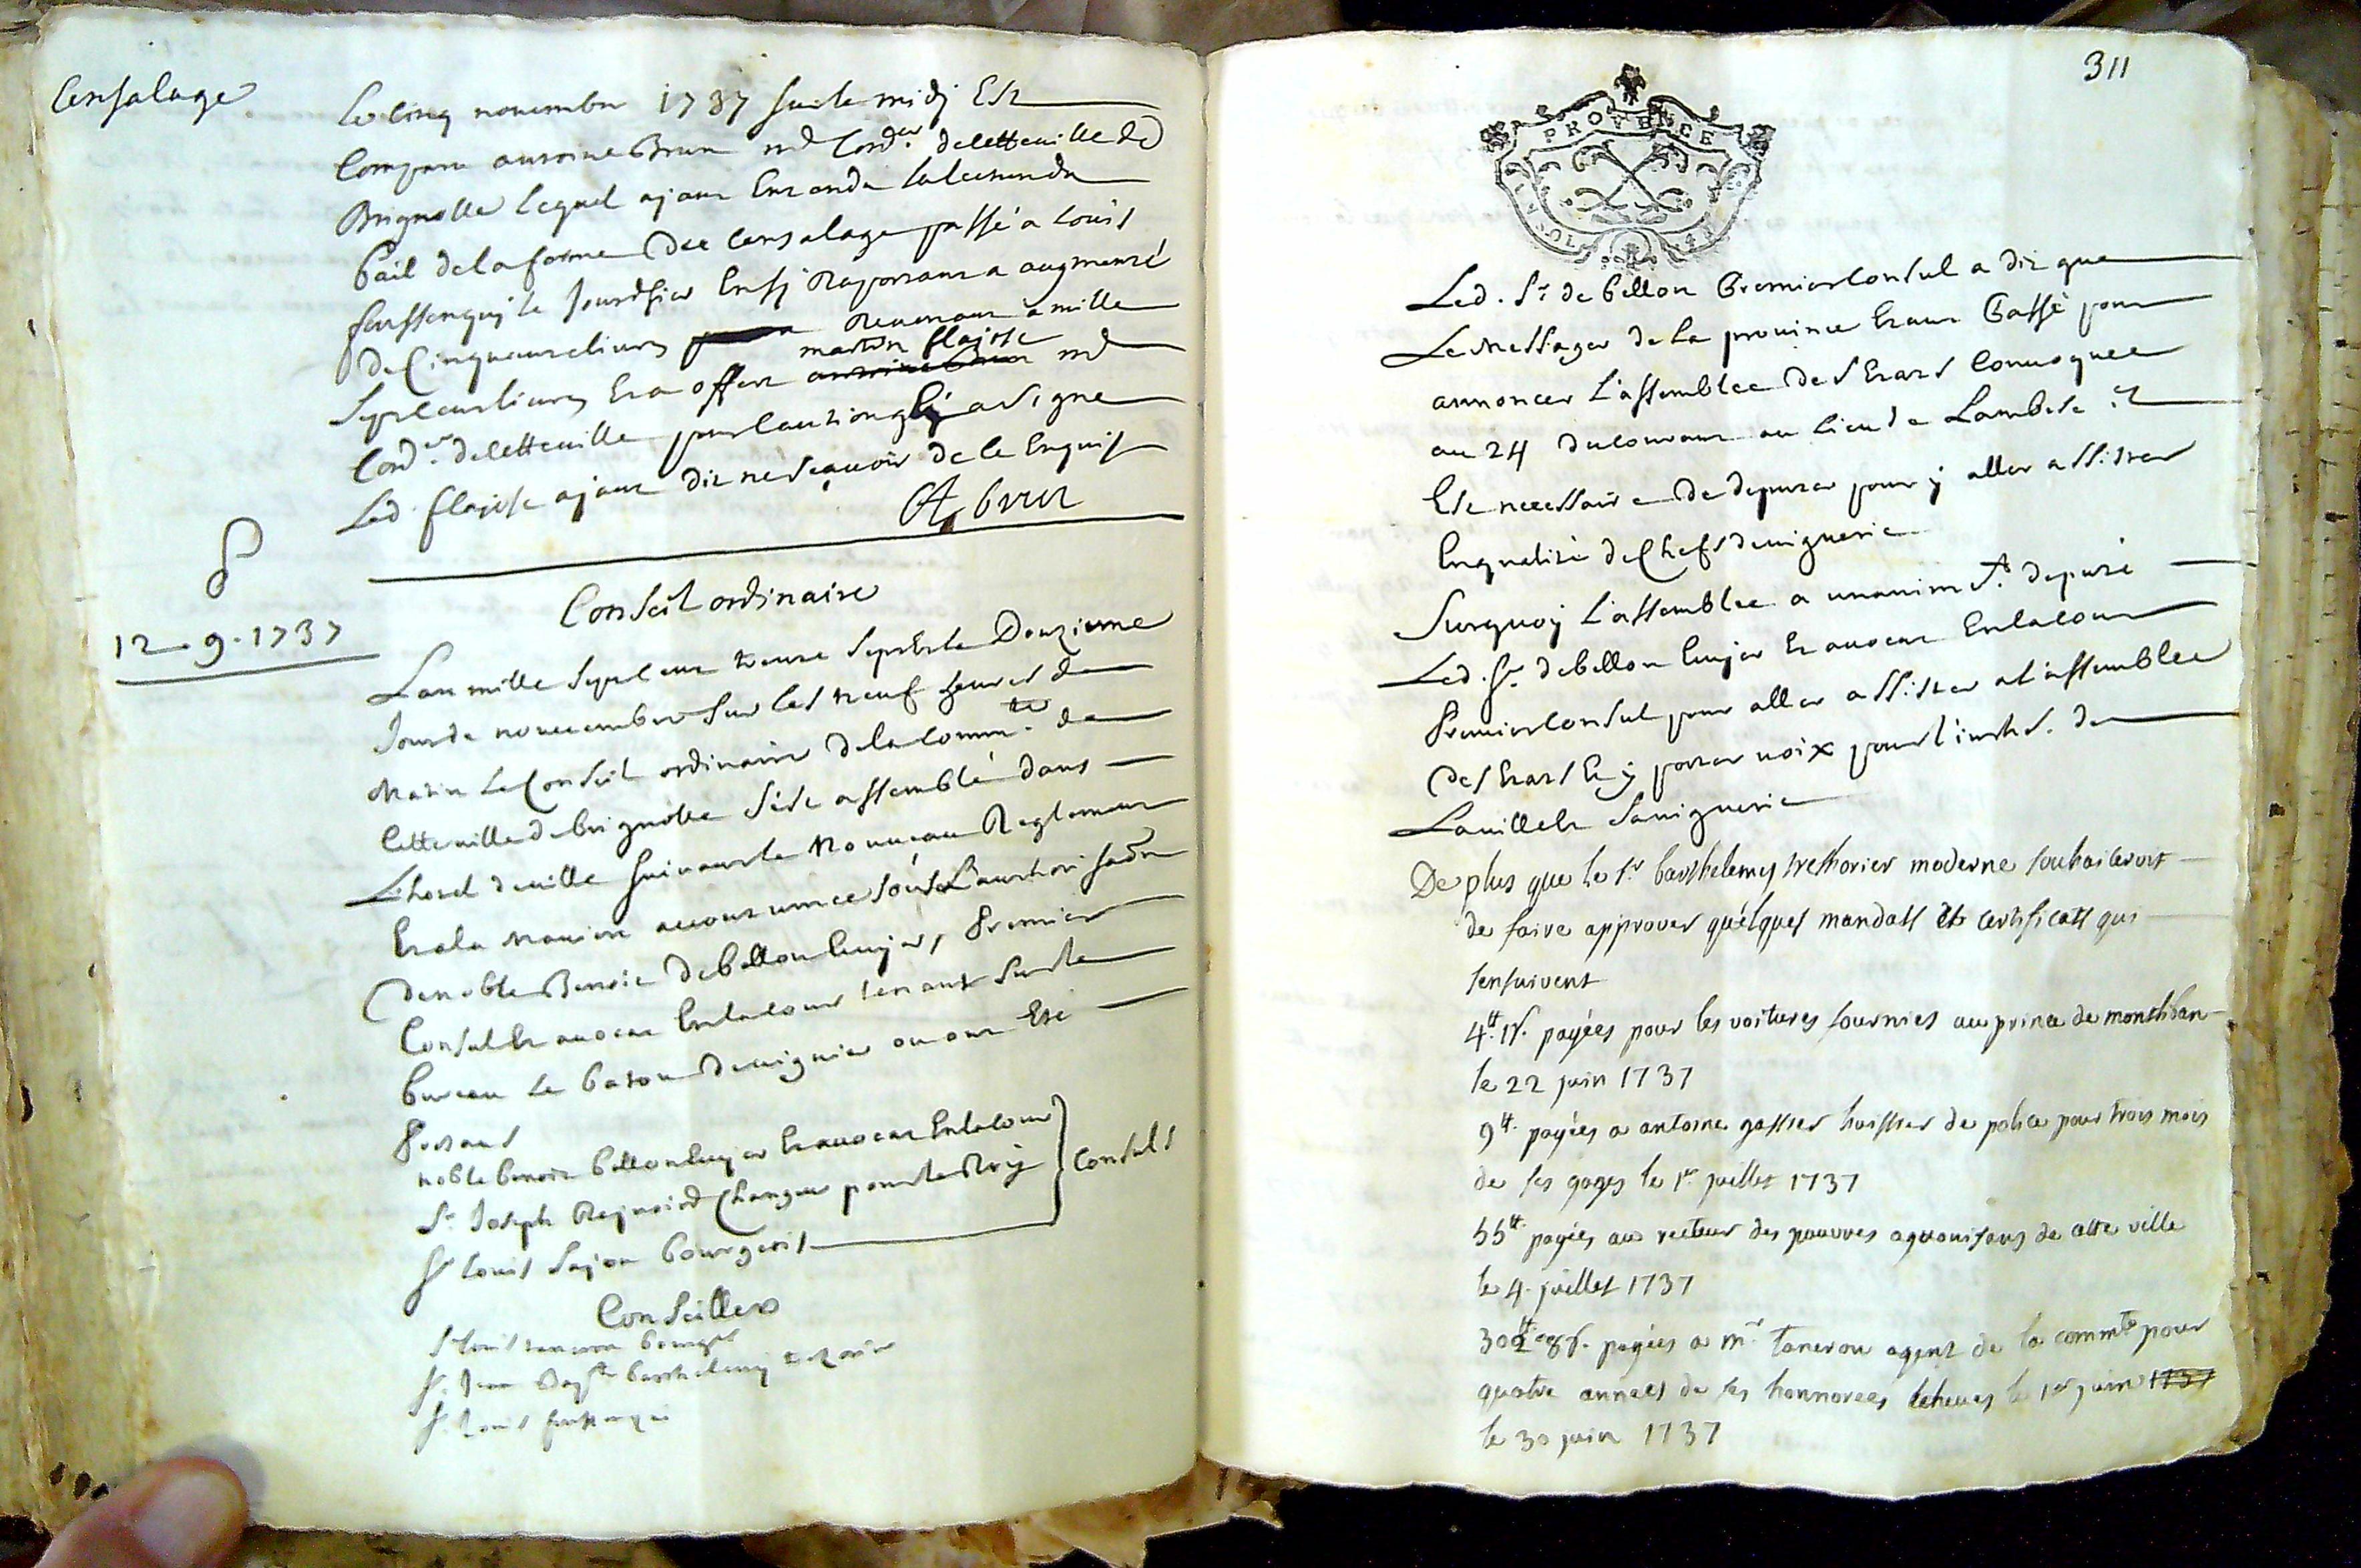 Censalage
Le cinq novembre 1737 sur le midj Est
Comparu antoine Brun md Cordr. de cette ville de
Brignolle lequel ajant Entandu la lecture du
bail de la ferme du Censalage passé a Louis
fassenquj le jourdhier En sj Raportant a augmenté
de Cinquante livres Revenant a mille
martin flajose
Sept cent livres Et a offert antoine brun md
Cordr. de cette ville pour caution quj a signe
Led. flajose ajant dit ne scavoir de le Enquis
A brun
12 - 9 - 1737
Conseil ordinaire
Lan mille sept cent trente sept Et le Douzieme
Jour de novembre sur les neuf heures du
Matin Le Conseil ordinaire de la Commté. de
Cette ville de brignolle s'est assemblé dans
L'hotel de ville suivant le Nouveau Reglement
Et a la Maniere accoutumee sous L'authorisaon
de noble Benoit de bellon Ecuyer, Premier
Consul Et avocat En la cour tenant sur le
bureau le baton de viguier ou ont Esté
Presans
noble benoit bellon Ecuyer Et avocat En la cour
Sr Joseph Rejnoird Changeur pour le Roy
Consuls
Sr Louis Sajou bourgeois
Conseillers
Sr Louis taneron bourgs
Sr. Jean Bapte barthelemy tresorier
Sr. Louis fassenquj
311
PROVENCE
Led. Sr. de bellon Premier Consul a dit que
Le Messager de la province Etant Passé pour
annoncer L'assemblee des Etats Convoquee
au 24 du courant au lieu de Lambesc il
Est necessaire de deputer pour y aller assister
En qualité de Chefs de viguerie
Sur quoy L'assemblee a unanimt. deputé
Led. Sr. de bellon Ecuyer Et avocat En la cour
Premier Consul pour aller assister a l'assemblee
des Etats Et y porter voix pour l'inthe. de
La ville Et sa viguerie
De plus que le sr barthelemy tresthorier moderne souhaiteroit
de faire approuver quelques mandats et certificats qui
sensuivent
4tt. 1s. payées pour les voitures fournies au prince de monthban
le 22 juin 1737
9tt. payées a antoine gassier huissier de police pour trois mois
de ses gages le 1er juillet 1737
55tt. payées au recteur des pauvres agonisans de cette ville
le 4. juillet 1737
302tt 8s. payées a mr taneron agent de la commté pour
quatre annees de ses honnorees echeues le 1er juin 1737
le 30 juin 1737